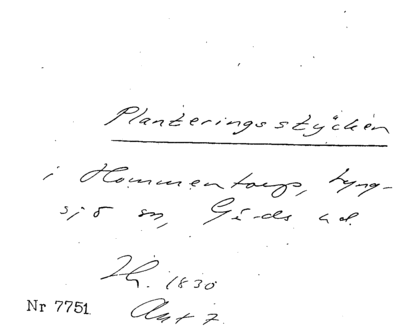 Planteringsstycken
i Hommentorp, Lyng-
sjö sn, Gärds hd.
Th. 1830
Nr 7751
Ant 7.